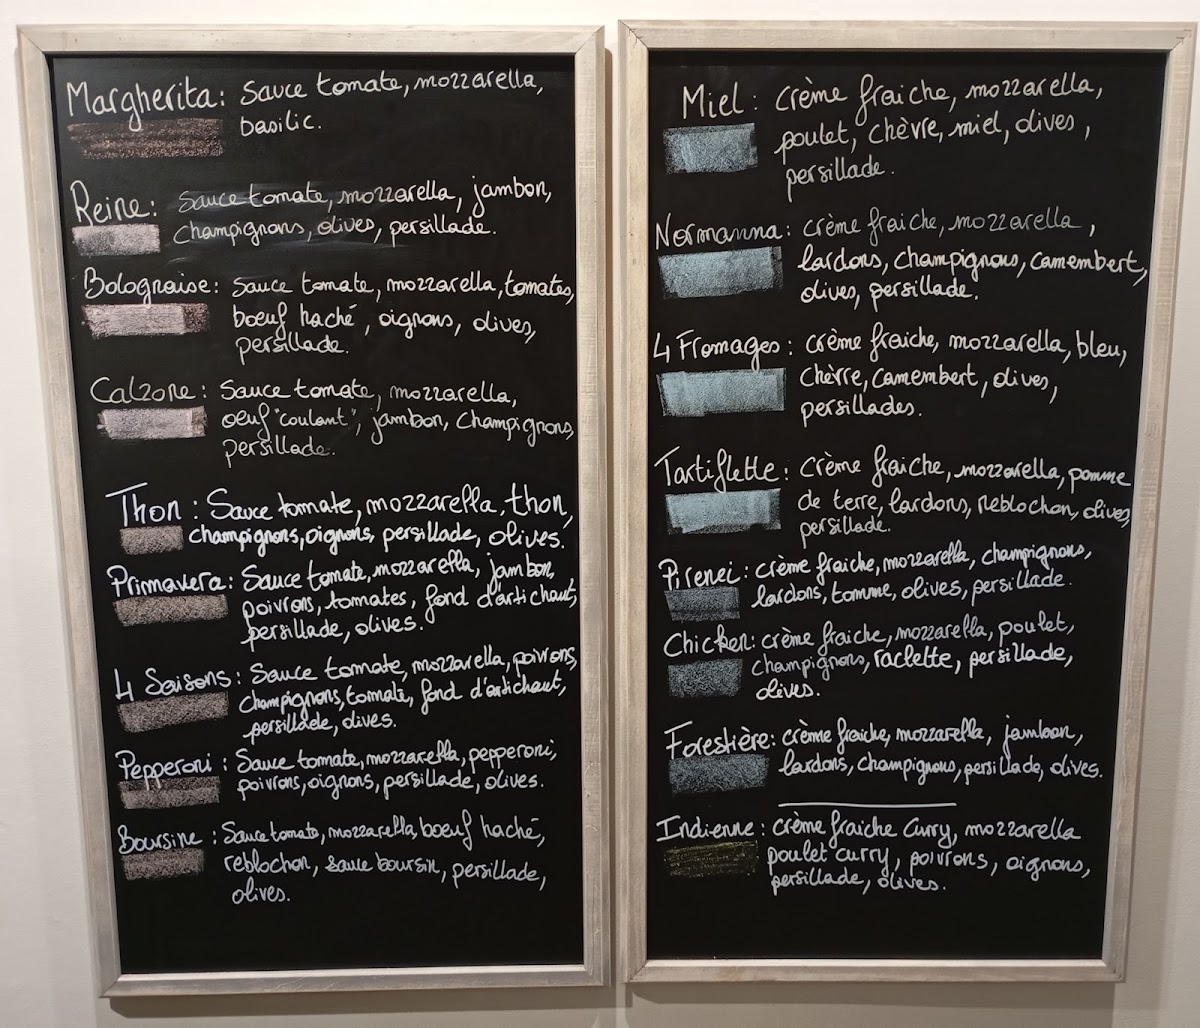 Margherita: Sauce tomate, mozzarella,
basilic.
Reine: Sauce tomate, mozzarella, jambon,
champignons, olives, persillade.
Bolognaise: Sauce tomate, mozzarella, tomates,
bœuf haché, oignons, olives,
persillade.
Calzone: Sauce tomate, mozzarella,
oeuf "coulant", jambon, Champignons,
persillade.
Thon: Sauce tomate, mozzarella, thon,
champignons, oignons, persillade, olives.
Primavera: Sauce tomate, mozzarella, jambon,
poivrons, tomates, fond d'artichaut,
persillade, olives.
4 Saisons: Sauce tomate, mozzarella, poivrons,
champignons, tomate, fond d'artichaut,
persillade, olives.
Pepperoni: Sauce tomate, mozzarella, pepperoni,
poivrons, oignons, persillade, olives.
Boursine: Sauce tomate, mozzarella, boeuf haché,
reblochon, sauce boursin, persillade,
olives.
Miel: crème fraiche, mozzarella,
poulet, chèvre, miel, olives,
persillade.
Normanna: crème fraiche, mozzarella,
lardons, champignons, camembert,
olives, persillade.
4 Fromages: crème fraiche, mozzarella, bleu,
chèvre, camembert, olives,
persillades.
Tartiflette: crème fraiche, mozzarella, pomme
de terre, lardons, reblochon, olives,
persillade.
Pirenei: crème fraiche, mozzarella, champignons,
lardons, tomme, olives, persillade.
Chicken: crème fraiche, mozzarella, poulet,
champignons, raclette, persillade,
olives.
Forestière: crème fraiche, mozzarella, jambon,
lardons, champignons, persillade, olives.
Indienne: crème fraiche curry, mozzarella
poulet curry, poivrons, oignons,
persillade, olives.